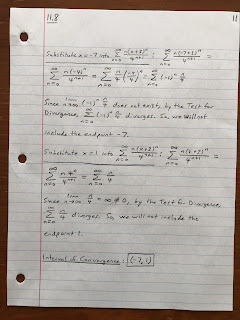 11.8
11
Substitute x = -7 into ∞Σn=0 n(x+3)^n / 4^(n+1) : ∞Σn=0 n(-7+3)^n / 4^(n+1) =
∞Σn=0 n(-4)^n / 4^(n+1) = ∞Σn=0 n/4 (-4/4)^n = ∞Σn=0 (-1)^n n/4
Since lim n→∞ (-1)^n n/4 does not exists, by the Test for
Divergence, ∞Σn=0 (-1)^n n/4 diverges. So, we will not
include the endpoint -7.
Substitute x = 1 into ∞Σn=0 n(x+3)^n / 4^(n+1) : ∞Σn=0 n(1+3)^n / 4^(n+1) =
∞Σn=0 n 4^n / 4^(n+1) = ∞Σn=0 n/4
Since lim n→∞ n/4 = ∞ ≠ 0, by the Test for Divergence,
∞Σn=0 n/4 diverges. So, we will not include the
endpoint 1.
Interval of Convergence: (-7, 1)